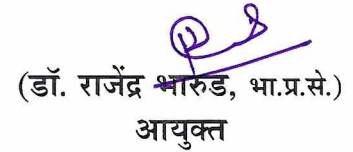 (डॉ. राजेंद्र भारुड, भा.प्र.से.)
आयुक्त